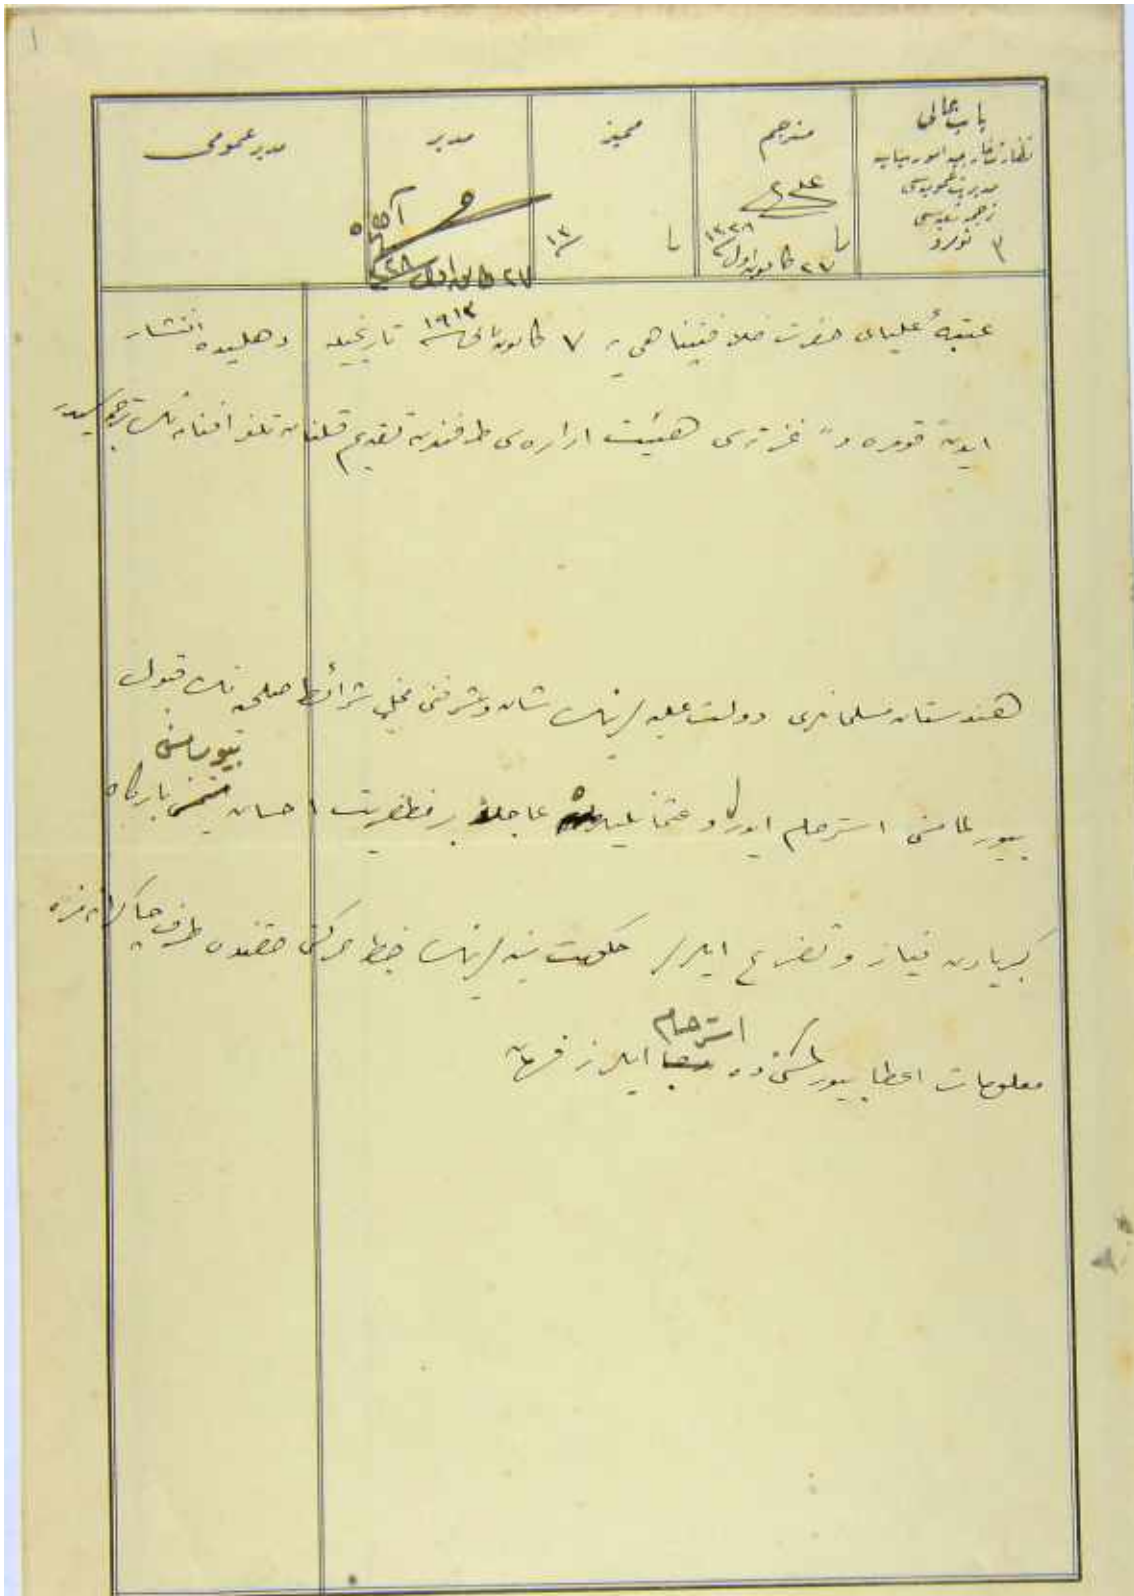 باب عالی
نظارت خارجیه امور سیاسیه
مدیریت عمومیه‌سی
ترجمه شعبه‌سی
نومرو ٣
مترجم
علی
٢٧ كانون اول ١٣٢٨
ممیز
١٣
مدیر
٢٧ كانون اول ٢٨
مدیر عمومی
عتبهٔ علیای حضرت خلافتپناهی یه ٧ كانون ثانی ١٩١٣ تاریخیله دهلیده انتشار
ایدن قومره د" غزته‌سی هیئت اداره‌سی طرفندن تقدیم قلنان تلغرافنامه‌نك ترجمه‌سیدر
هندستان مسلمانلری دولت علیه لرینك شان و شرفنی مخل شرائط صلحیه‌نك قبول
بیورلمامسنی استرحام ایدرلر و عثمانلیلره عاجلاً بر مظفریت احسان بیورمسنی بارگاه
كبریادن نیاز و تضرع ایدرلر حكومت سنیه لرینك خط حركتی حقنده طرف چاكرانه مزه
معلومات اعطا بیورلمسنی ده استرحام ایدرز فرمان